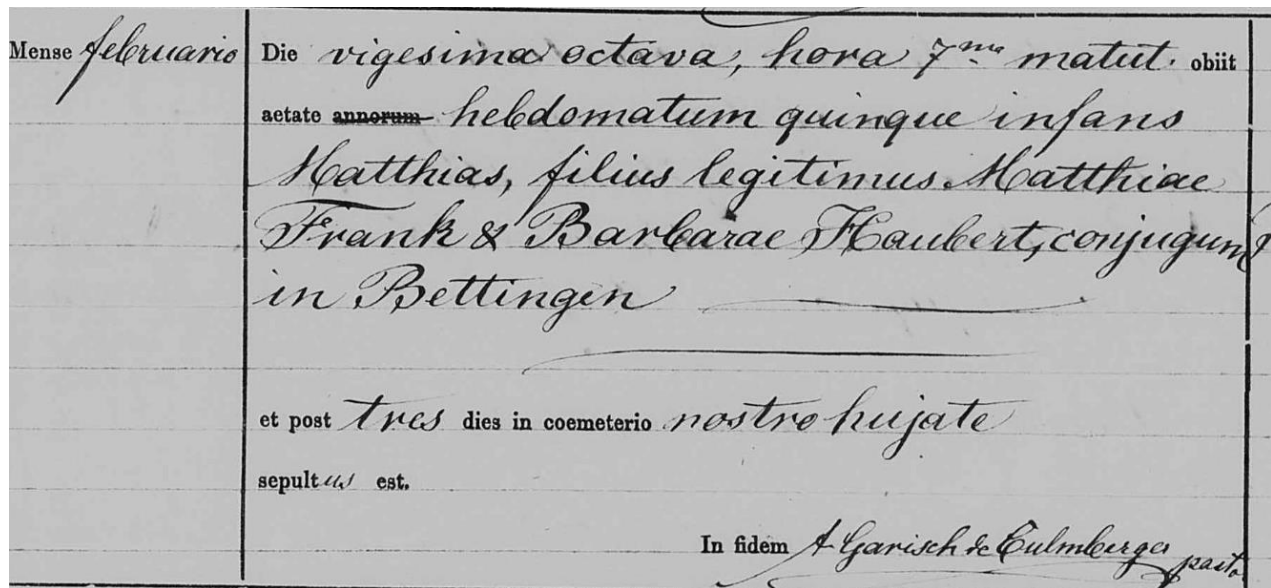 Mense februario
Die vigesima octava, hora 7ma matut. obiit
aetate annorum hebdomatum quinque infans
Matthias, filius legitimus Matthiae
Frank & Barbarae Haubert, conjugum
in Bettingen
et post tres dies in coemeterio nostro hujate
sepultus est.
In fidem A Garisch de Culmberger pastor